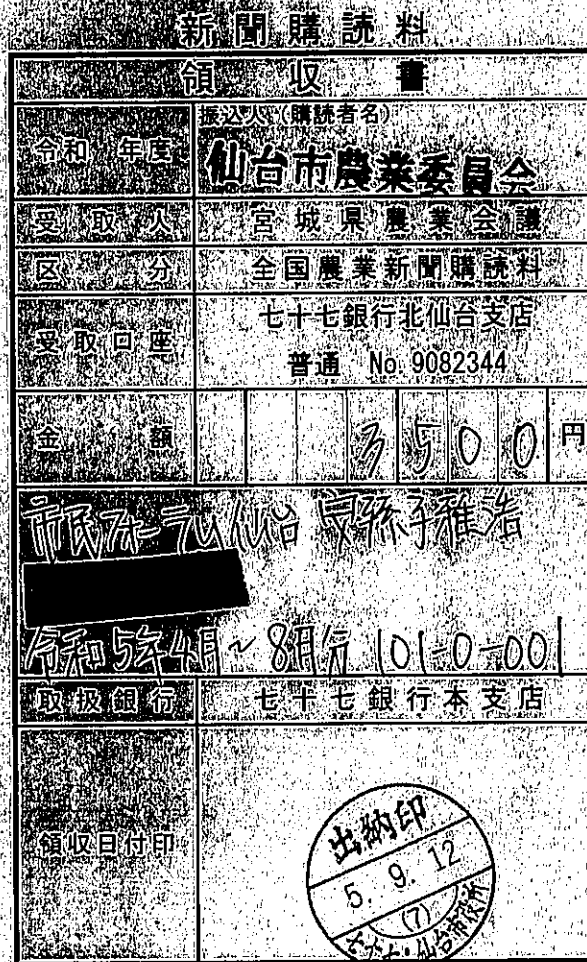 新聞購読料
領収書
令和 年度
振込人(購読者名)
仙台市農業委員会
受取人 宮城県農業会議
区分 全国農業新聞購読料
受取口座 七十七銀行北仙台支店
普通 No. 9082344
金額 3500円
市民フォーラム仙台 安孫子雅浩
令和5年4月~8月分 101-0-001
取扱銀行 七十七銀行本支店
領収日付印
出納印
5. 9. 12
(7)
七十七・仙台市役所